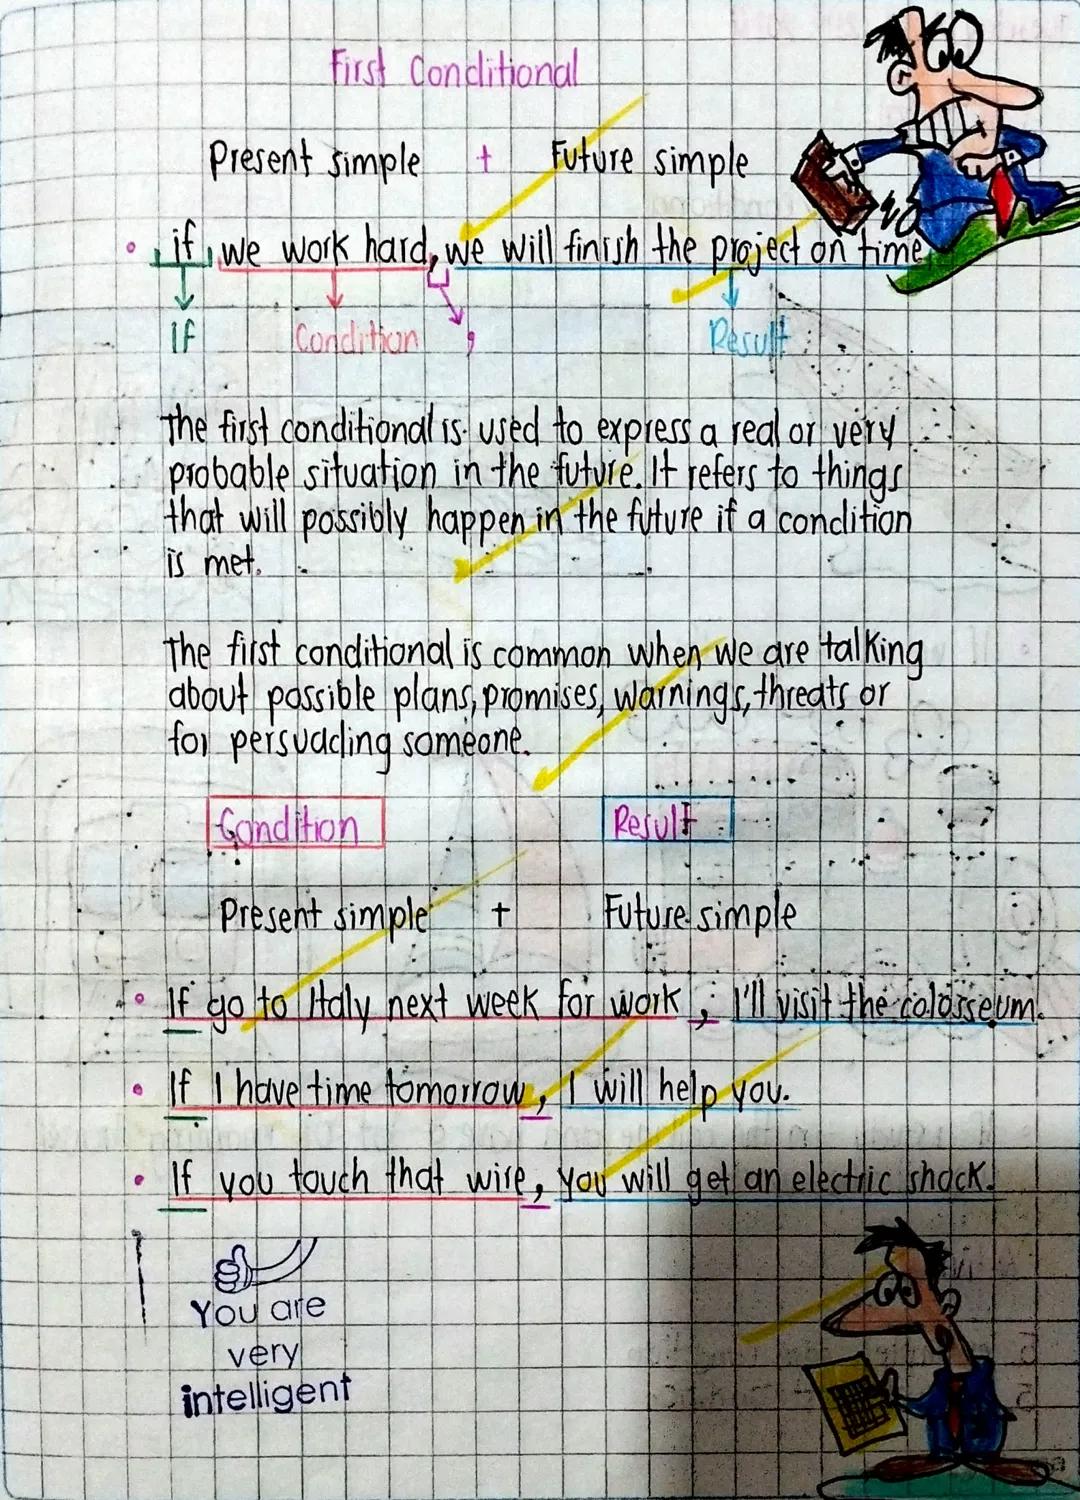 First Conditional
Present simple + Future simple
• if we work hard, we will finish the project on time
If Condition , Result
The first conditional is used to express a real or very
probable situation in the future. It refers to things
that will possibly happen in the future if a condition
is met.
The first conditional is common when we are talking
about possible plans, promises, warnings, threats or
for persuading someone.
Condition Result
Present simple + Future simple
• If go to Italy next week for work, I'll visit the colosseum.
• If I have time tomorrow, I will help you.
• If you touch that wire, you will get an electric shock.
You are
very
intelligent